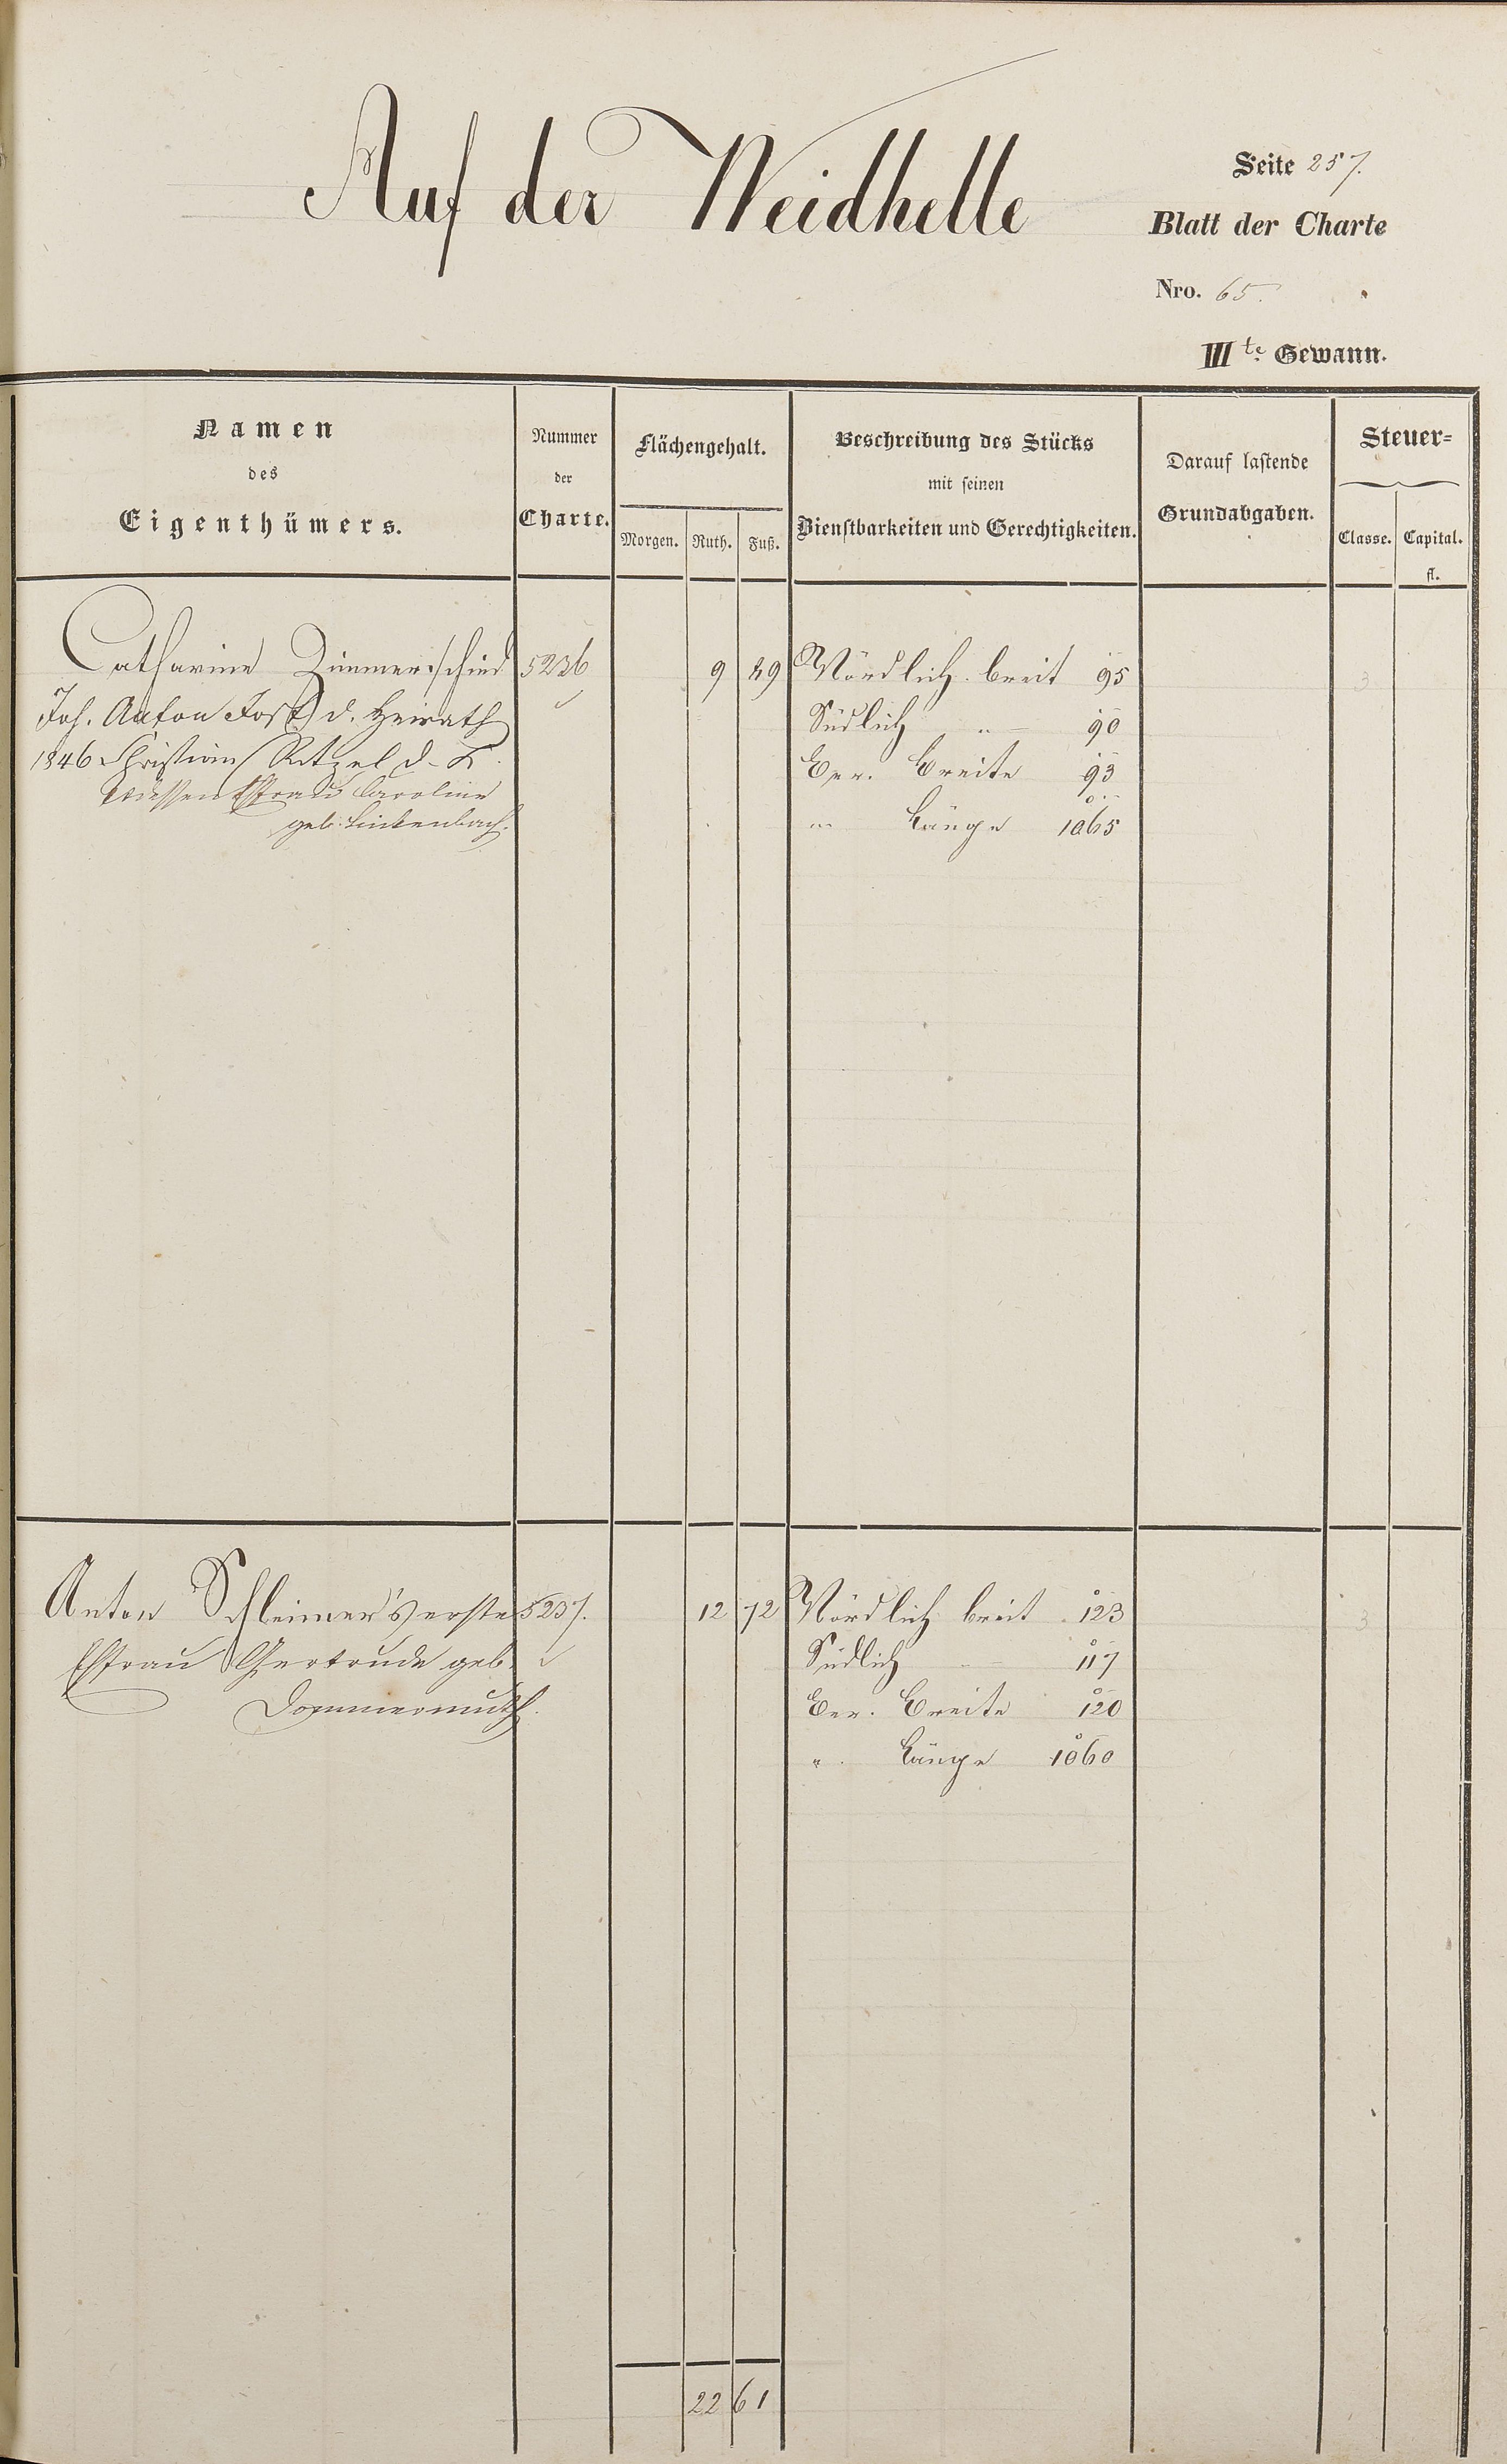 Auf der Weidhelle
Seite 257.
Blatt der Charte
Nro. 65.
III te Gewann.
Namen
des
Eigenthümers.
Nummer
der
Charte.
Flächengehalt.
Morgen. Ruth. Fuß.
Beschreibung des Stücks
mit seinen
Dienstbarkeiten und Gerechtigkeiten.
Darauf lastende
Grundabgaben.
Steuer=
Classe. Capital.
fl.
Catharine Zimmerschied 5236 9 89 Nördlich breit 95 3
Joh. Anton Jost d. Heirath Südlich " 90
1846 Christian Ritzel d. K. Ver. Breite 93
dessen Ehfrau Caroline
geb. Linkenbach. " Länge 1065
Anton Schleimer's erste 5237. 12 72 Nördlich breit 123 3
Ehfrau Gertrude geb. Südlich — 117
Dommermuth. Ver. Breite 120
" Länge 1060
22 61